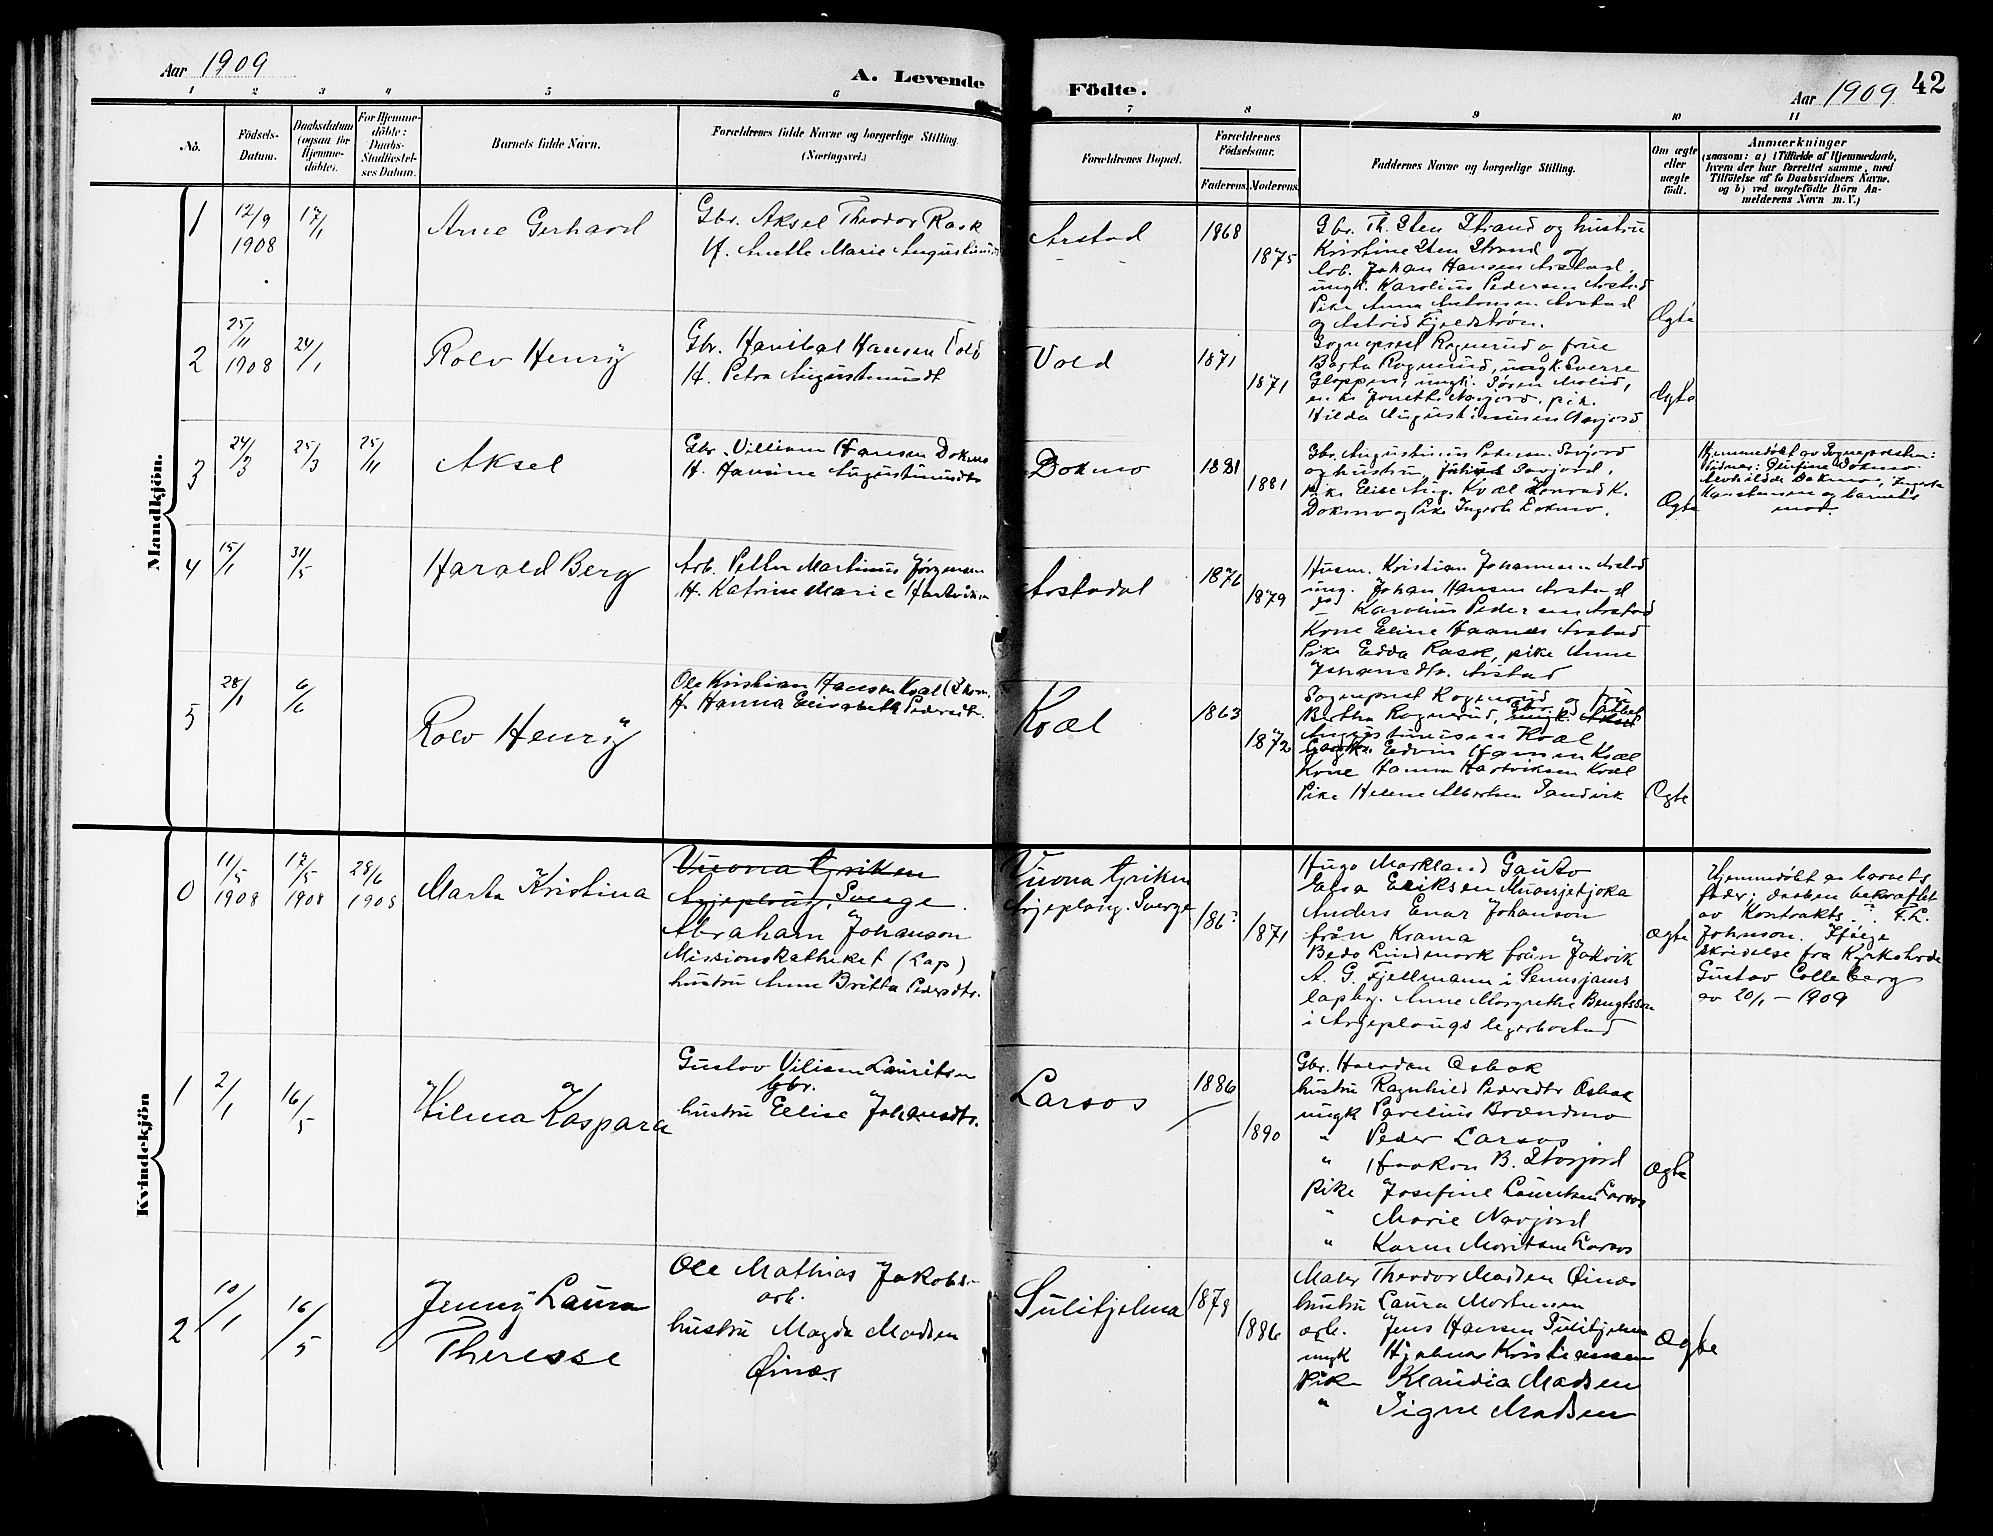 Aar 1909
A. Levende Födte.
Aar 1909
42
1 2 3 4 5 6 7 8 9 10 11
No.
Födsels-
Datum.
Daabsdatum
(ogsaa for
Hjemme-
döbte).
For Hjemme-
döbte:
Daabs-
Stadfæstel-
ses Datum.
Barnets fulde Navn.
Forældrenes fulde Navne og borgerlige Stilling
(Næringsvei.)
Forældrenes Bopæl.
Forældrenes
Födselsaar.
Faderens. Moderens.
Faddernes Navne og borgerlige Stilling.
Om ægte
eller
uægte
födt.
Anmærkninger
(saasom: a) i Tilfælde af Hjemmedaab,
hvem der har forrettet samme, med
Tilföielse af to Daabsvidners Navne.
og b) ved uægtefödte Börn An-
melderens Navn m. V.)
Mandkjön.
1
12/9
1908
17/1
Arne Gerhard
Gbr. Aksel Theodor Rask
H. Anette Marie Augustinusd
Arstad
1868
1875
Gbr. Th. Sten Strand og hustru
Kristine Sten Strand og
arb. Johan Hansen Arstad,
ungk. Karolius Pedersen Arstad
Pike Anna Antonsen Arstad
og Astrid Fjeldstrøm.
Ægte
2
25/11
1908
24/1
Rolv Henry
Gbr. Hanibal Hansen Vold
H. Petra Augustinusdt
Vold
1871
1871
Sogneprest Rognerud og frue
Berta Rognerud, ungk. Sverre
Gloppen, ungk. Sören Molid,
Hilda Augustinussen Navjord
Ægte
3
24/3
25/3
25/11
Aksel
Gbr. Villiam Hansen Dokmo
H. Hansine Augustinusdtr
Dokmo
1881
1881
Gbr. Augustinus Pedersen Savjord
og hustru Savjord,
pike Elise Aug. Kvæl Konrad K.
Dokmo og Pike Ingerh Dokmo.
Ægte
Hjemmedöbt av Sogneprasten:
Vidner: Josefine Dokmo
Dokmo,
og barnets
mor.
4
15/1
31/5
Harald Berg
Arb. Petter Martinus Jørgensen
H. Katrine Marie Hartviksn
Arstadal
1876
1879
Husm. Kristian Johannesen Arstad
ung. Johan Hansen Arstad
do Karolius Pedersen Arstad
Kone Eline Haanes Arstad
Pike Edda Rask, pike Anne
Johansdtr. Arstad
5
28/1
6/6
Rolv Henry
Ole Kristian Hansen Kvæl
H. Hanna Elisabeth Pedersdtr.
Kvæl
1863
1872
Sogneprest Rognerud og frue
Bertha Rognerud, ungk. Aksel
Augustinusen Kvæl
Edvin Hansen Kvæl
Kone Hanna Hartviksen Kvæl
Pike Helene Albertsen Sandvik
Ægte
Kvindekjön
0
11/5
1908
17/5
1908
28/6
1908
Marta Kristina
Vuona Griken
Arjeploug, Sverge.
Abraham Johanson
Missionskatheket (Lap)
hustru Anne Britta Pedersdtr.
Vuona Griken
Arjeploug. Sverge
186?
1871
Hugo Markland Gauto
Elsa Eriksen Muorsjetjoka
Anders Enar Johanson
från Krama
Beda Lindmark från Jäkvik
A. G. Fjellmann i Semsjams
lapby. Anne Margrethe Bengtsson
i Arjeplougs legerbostad
Ægte
Hjemmedöbt av barnets
fader; daaben bekræftet
av Kontrakts .. F. L.
Johnson. Ifölge
skrivelse fra Kyrkoherde
Gustav Calleberg
av 20/1 – 1909
1
2/1
16/5
Hilma Kaspara
Gustav Viliam Lauritsen
Gbr.
hustru Elise Johansdtr.
Larsos
1886
1890
Gbr. Halvdan Osbak
hustru Ragnhild Pedersdtr Osbak
ungk Parelius Brændmo
" Peder Larsos
" Haakon B. Storjord
Pike Josefine Lauritsen Larsos
" Marie Navjord
" Karen Moritsen Larsos
Ægte
2
10/1
16/5
Jenny Laura
Theresse
Ole Mathias Jakobs-
arb.
hustru Magda Madsen
Øines
Sulitjelma
1879
1886
Maler Theodor Madsen Øines
hustru Laura Mortensen
arb. Jens Hansen Sulitjelma
ungk Hjalmar Kristiansen
Pike Klaudia Madsen
" Signe Madsen
Ægte